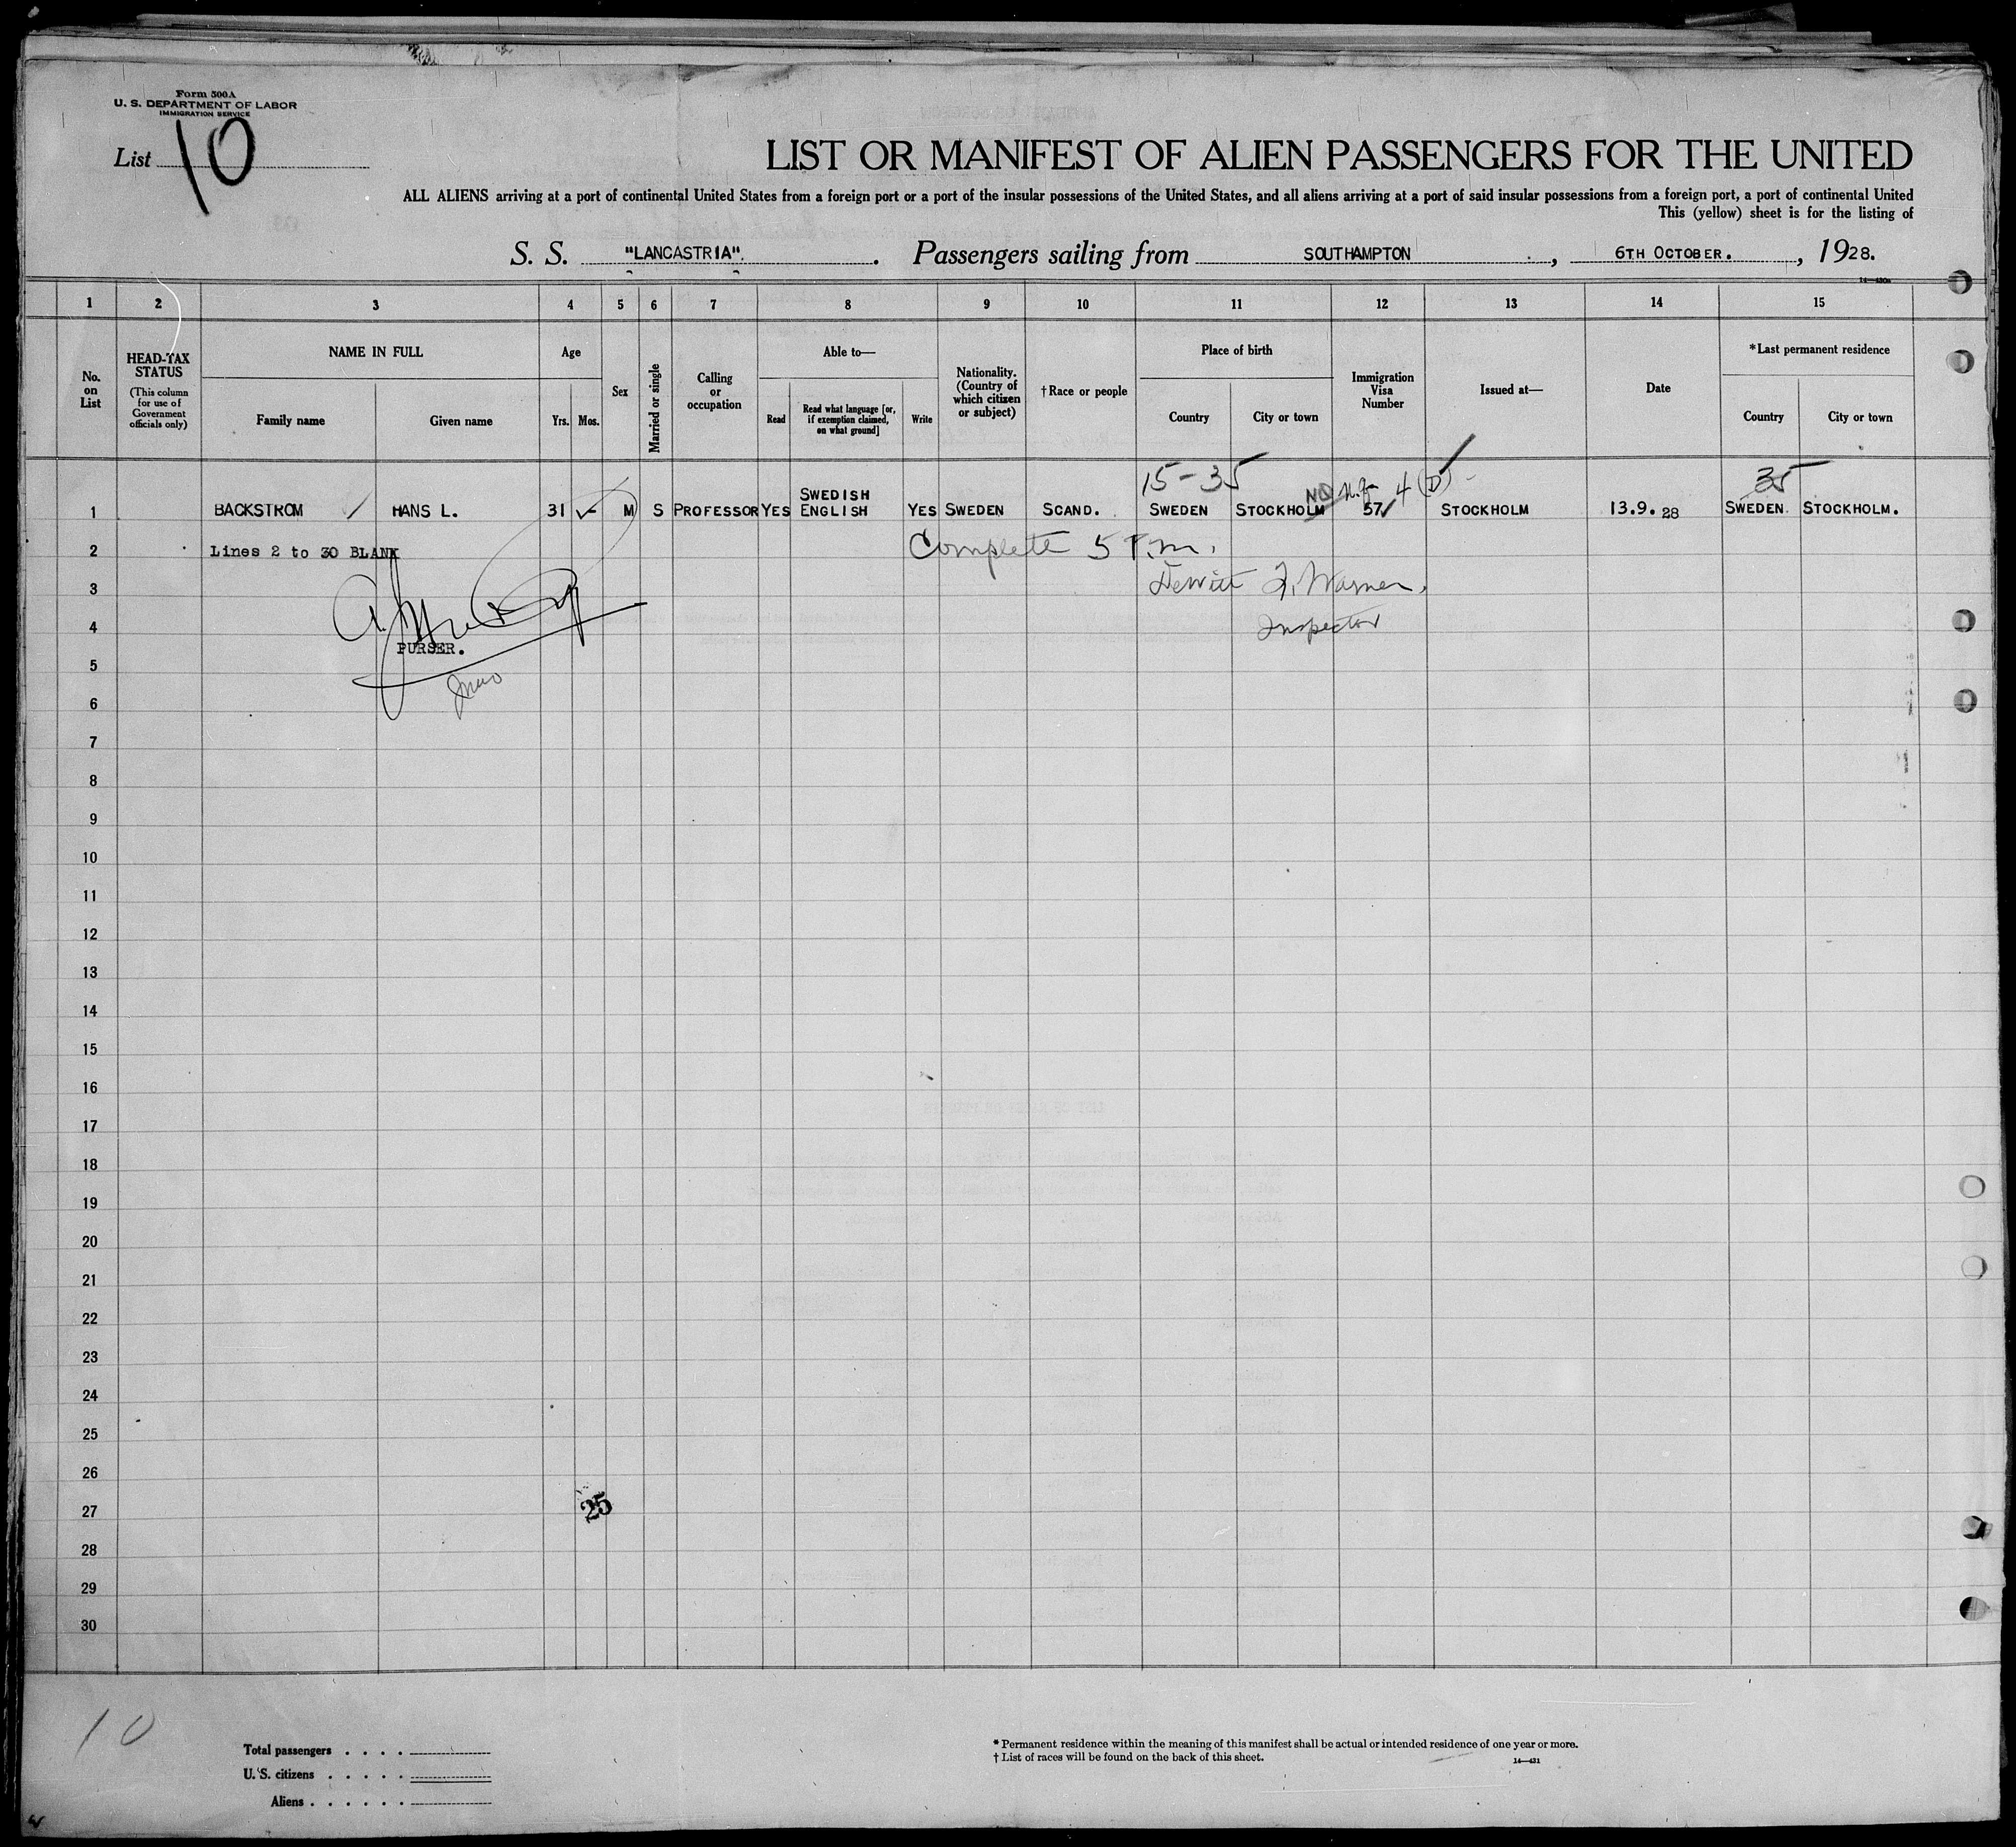 Form 500A
U. S. DEPARTMENT OF LABOR
IMMIGRATION SERVICE
List 10
LIST OR MANIFEST OF ALIEN PASSENGERS FOR THE UNITED
ALL ALIENS arriving at a port of continental United States from a foreign port or a port of the insular possessions of the United States, and all aliens arriving at a port of said insular possessions from a foreign port, a port of continental United
This (yellow) sheet is for the listing of
S. S. "LANCASTRIA". Passengers sailing from SOUTHAMPTON, 6TH OCTOBER., 1928.
1 2 3 4 5 6 7 8 9 10 11 12 13 14 15
No. on List
HEAD-TAX STATUS
(This column for use of Government officials only)
NAME IN FULL
Family name
Given name
Age
Yrs. Mos.
Sex
Married or single
Calling or occupation
Able to—
Read
Read what language [or, if exemption claimed, on what ground]
Write
Nationality. (Country of which citizen or subject)
†Race or people
Place of birth
Country
City or town
Immigration Visa Number
Issued at—
Date
*Last permanent residence
Country
City or town
15-35 NQ 4 (D) 35
1 BACKSTROM HANS L. 31 M S PROFESSOR YES SWEDISH ENGLISH YES SWEDEN SCAND. SWEDEN STOCKHOLM 57 STOCKHOLM 13.9.28 SWEDEN STOCKHOLM.
2 Lines 2 to 30 BLANK Complete 5 P.m.
3 Dewitt F. Warner.
4 Inspector
PURSER.
5
6
7
8
9
10
11
12
13
14
15
16
17
18
19
20
21
22
23
24
25
26
27
25
28
29
30
10
Total passengers . . . .
U. S. citizens . . . . .
Aliens . . . . . .
* Permanent residence within the meaning of this manifest shall be actual or intended residence of one year or more.
† List of races will be found on the back of this sheet.
14—431